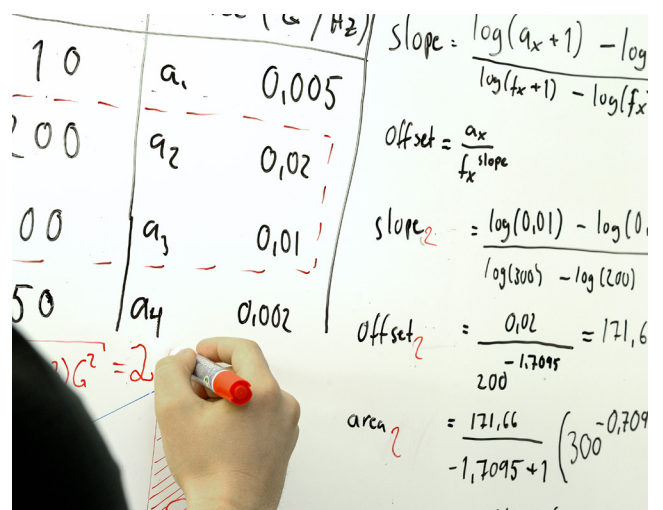 (G²/Hz)
10 a₁ 0,005
200 a₂ 0,02
00 a₃ 0,01
50 a₄ 0,002
)G² = 2
slope = log(aₓ+1) - log
log(fₓ+1) - log(fₓ
Offset = aₓ
fₓ^slope
slope₂ = log(0,01) - log(0,
log(300) - log(200)
offset₂ = 0,02 = 171,6
200^-1,7095
area₂ = 171,66 (300^-0,709
-1,7095+1